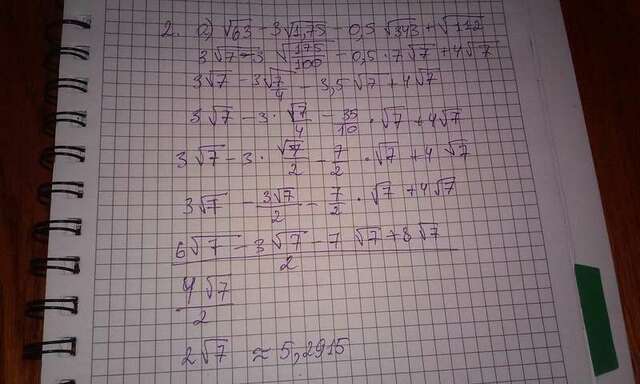 2. а) √63 - 3√1,75 - 0,5 √343 + √112
3√7 - 3 √175/100 - 0,5 · 7√7 + 4√7
3√7 - 3√7/4 - 3,5 √7 + 4√7
3√7 - 3 · √7/4 - 35/10 · √7 + 4√7
3√7 - 3 · √7/2 - 7/2 · √7 + 4 √7
3√7 - 3√7/2 - 7/2 · √7 + 4√7
6√7 - 3√7 - 7 √7 + 8√7 / 2
4√7/2
2√7 ≈ 5,2915